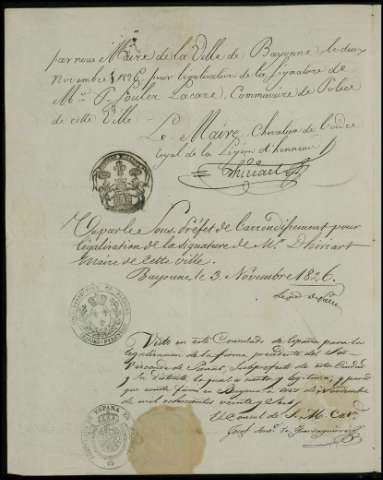 par nous Maire de la Ville de Bayonne le deux
Novembre 1826 pour légalisation de la signature de
Mr. P. Lacaze, Commissaire de Police
de cette Ville.
Le Maire, Chevalier de l'ordre
royal de la Légion d'honneur
Dhiriart
Vu par le Sous Préfet de l'arrondissement pour
légalisation de la signature de Mr. Dhiriart
Maire de cette ville.
Bayonne le 3. Novembre 1826.
Visto en este Consulado de España para la
legalizacion de la firma precedente del Sor.
Vizconde de Subprefecto de esta Ciudad
y su distrito la qual es cierta y legitima, y para
que conste firmo en Bayona a tres de Noviembre
de mil ochocientos veinte y seis.
El Consul de S. M. Cat.
ESPAÑA